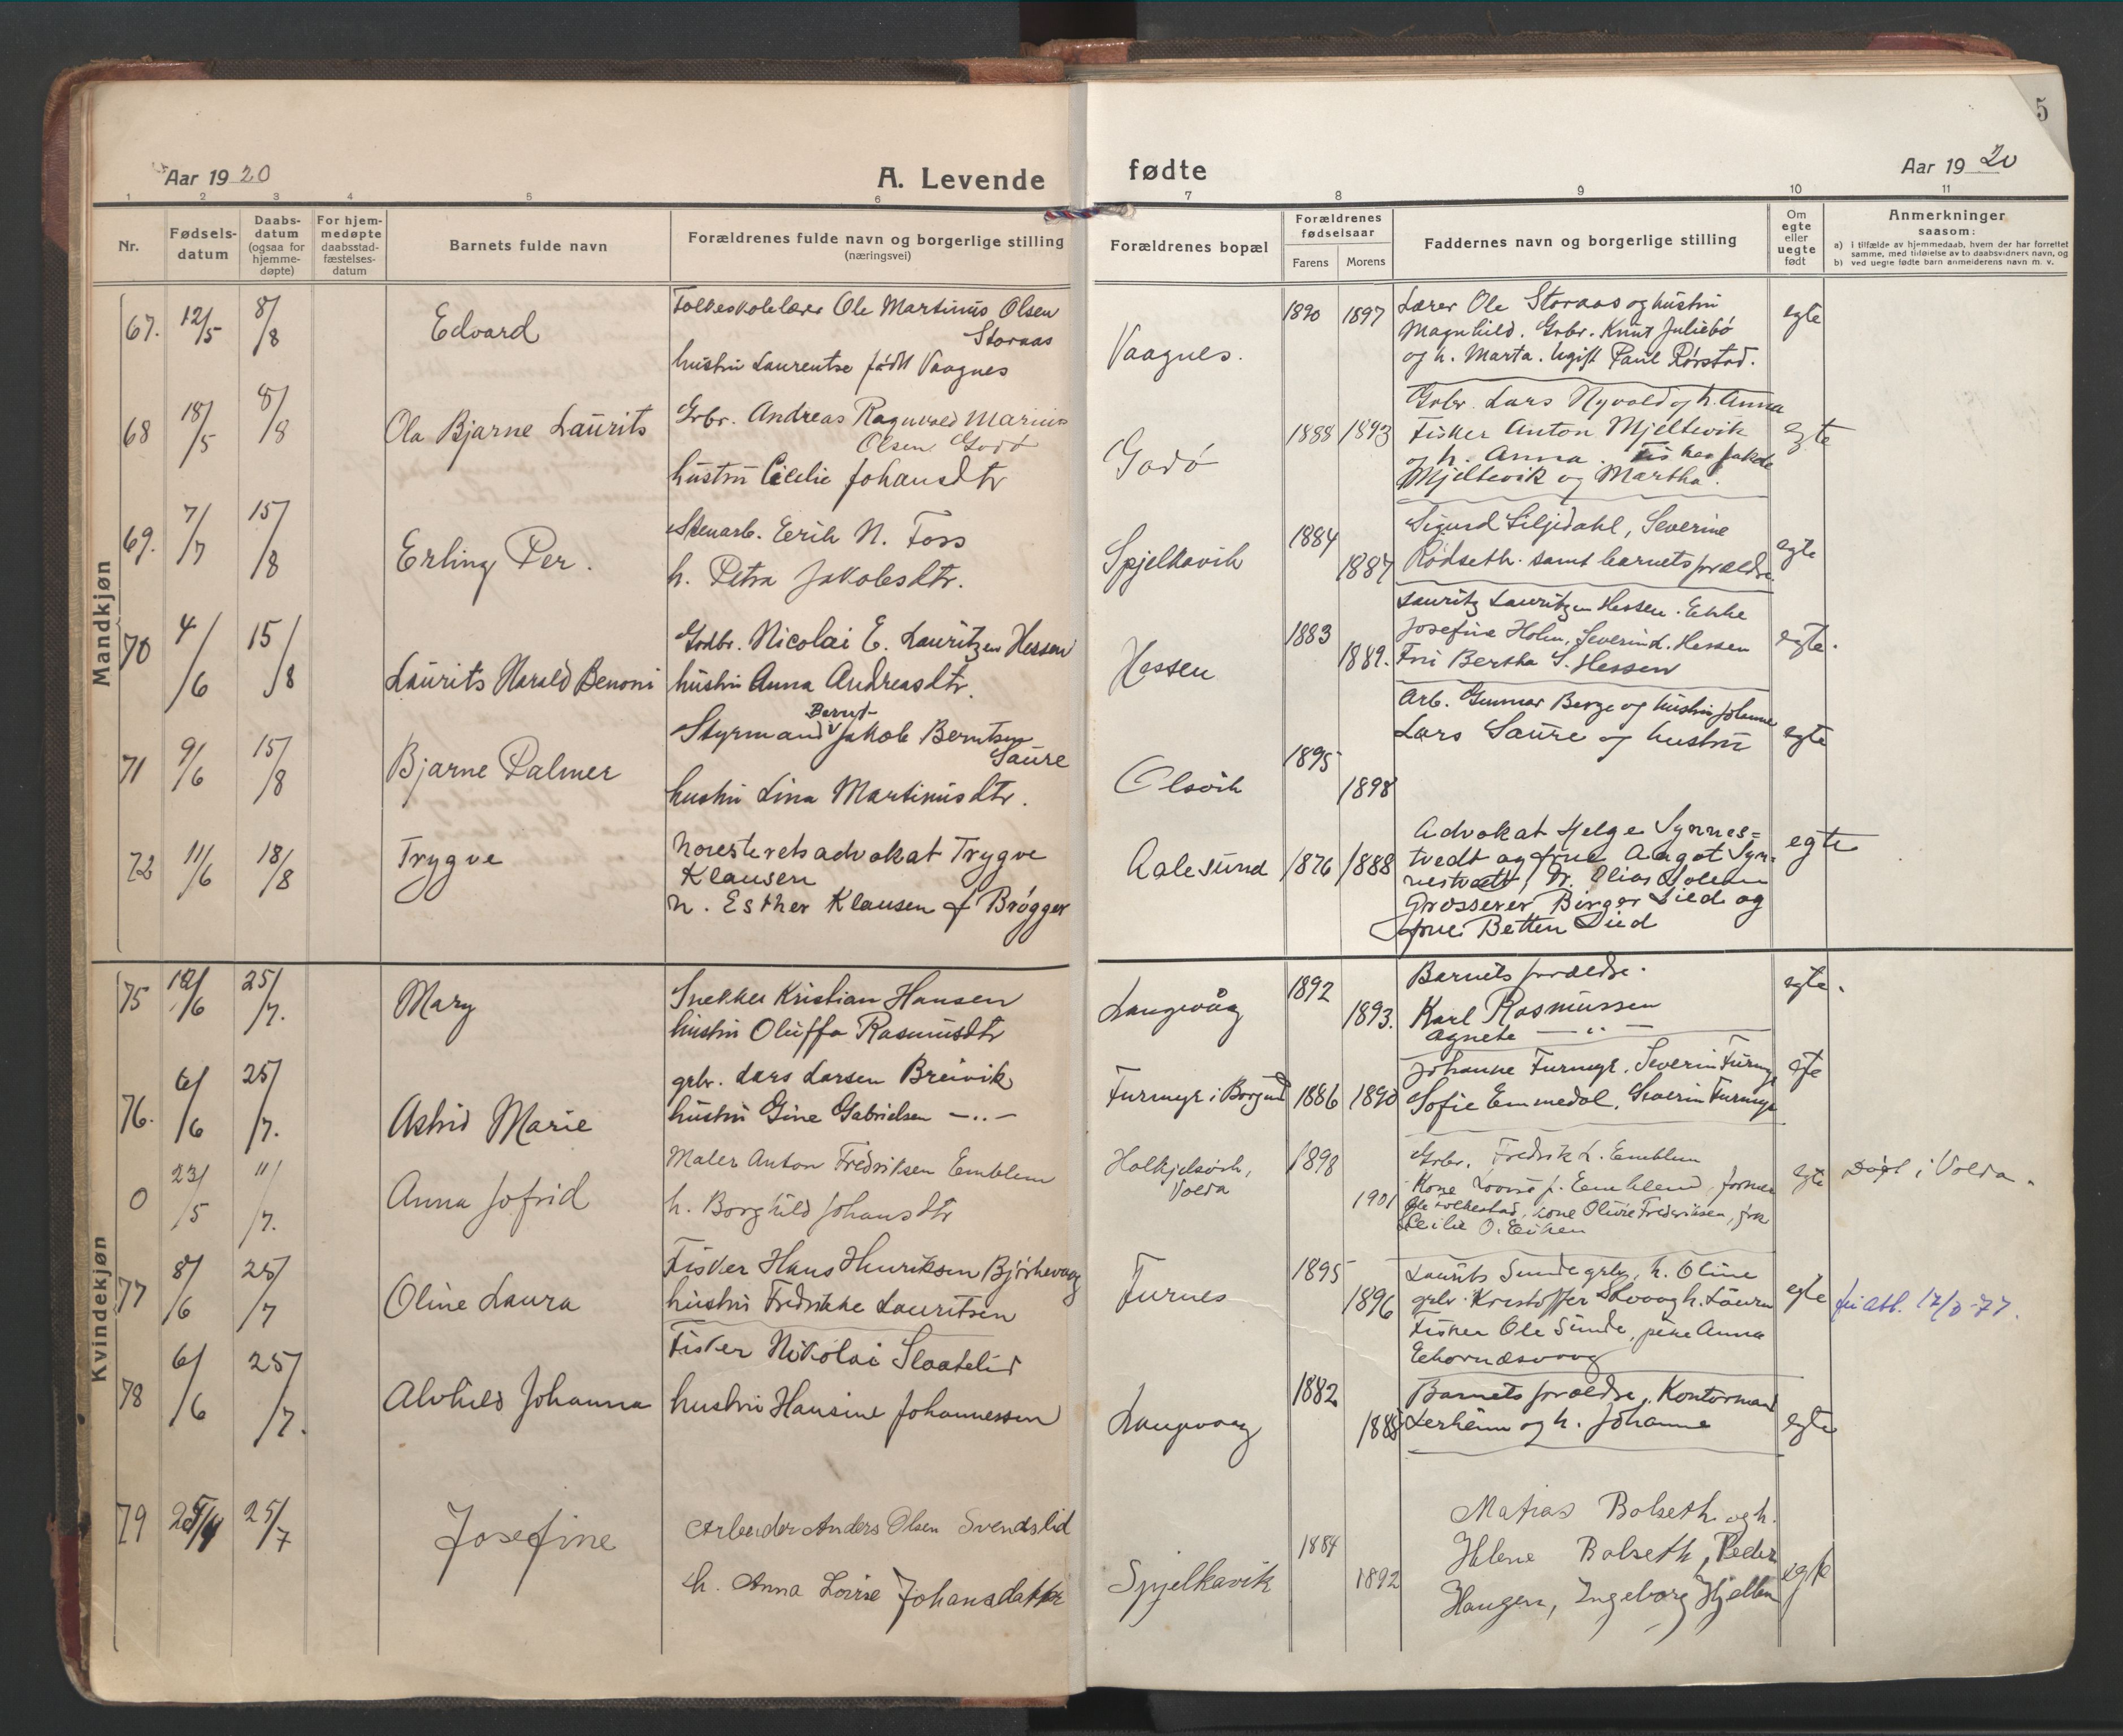 5
Aar 1920
A. Levende
fødte
Aar 1920
1 2 3 4 5 6 7 8 9 10 11
Nr.
Fødselsdatum
Daabsdatum
(ogsaa for
hjemmedøpte)
For hjemmedøpte
daabsstadfæstelsesdatum
Barnets fulde navn
Forældrenes fulde navn og borgerlige stilling
(næringsvei)
Forældrenes bopæl
Forældrenes
fødselsaar
Farens Morens
Faddernes navn og borgerlige stilling
Om
egte
eller
uegte
født
Anmerkninger
saasom:
a) i tilfælde av hjemmedaab, hvem der har forrettet
samme, med tilføielse av to daabsvidners navn, og
b) ved uegte fødte barn anmelderens navn m. v.
Mandkjøn
67. 12/5 8/8 Edvard
Folkeskolelærer Ole Martinus Olsen
Storaas
hustru Laurentse født Vaagnes
Vaagnes. 1890 1897
Lærer Ole Storaas og hustru
Magnhild. Grbr. Knut Juliebø
og h. Marta. Ugift Paul Rørstad.
egte
68 18/5 8/8 Ola Bjarne Laurits
Grbr. Andreas Ragnvald Marius
Olsen Godø
hustru Cecilie Johansdtr
Godø 1888 1893
Grbr. Lars Nyvold og h. Anna
Fisker Anton Mjeltevik
og h. Anna. Jakob
Mjeltevik og Martha.
egte
69. 7/7 15/8 Erling Per.
Stenarb. Eerik N. Foss
h. Petra Jakobsdtr.
Spjelkavik 1884 1887
Sigurd Liljedahl, Severine
Rødseth. samt barnets forældre
egte
70 4/6 15/8 Laurits Harald Benoni
Grdbr. Nicolai E. Lauritzen Hessen
hustru Anna Andreasdtr.
Hessen 1883 1889.
Lauritz Lauritzen Hessen. Enke
Josefine Holm, Severin L. Hessen
Fri Bertha S. Hessen
egte.
71 9/6 15/8 Bjarne Palmer
Bernt
Styrmand Jakob Berntsen
Saure
hustru Lina Martinusdtr.
Olsvik 1895 1898
Arb. Gunnar Berge og hustru Johanne
Lars Saure og hustru
egte
72 11/6 18/8 Trygve
Høiesteretsadvokat Trygve
Klausen
h. Esther Klausen f. Brøgger
Aalesund 1876 1888
Advokat Helge Synnes=
tvedt og frue Aagot Syn-
nestvedt, Dr. Olias
Grosserer Birger Lied og
frue Betten Lied
egte
Kvindekjøn
75 12/6 25/7. Mary
Snekker Kristian Hansen
hustru Oluffa Rasmusdtr
Langevåg 1892 1893.
Barnets forældre.
Karl Rasmussen
Agnete — " —
egte.
76. 6/6 25/7. Astrid Marie
grbr. Lars Larsen Breivik
hustru Gine Gabrielsen —..—
Furmyr i Borgund 1886 1890
Johanne Furmyr, Severin Furmyr
Sofie Emmedal, Severin Furmyr
egte
0 23/5 11/7. Anna Jofrid
Maler Anton Fredriksen Emblem
h. Borghild Johansdtr
Halkjelsvik,
Volda
1898 1901
Grbr. Fredrik L. Emblem
Kone Lovise f. Emblem,
Folkestad, kone Olivie Fredriksen, frk
Cecilie O. Eiken
egte
Døpt i Volda.
77 8/6 25/7 Oline Laura
Fisker Hans Henriksen Bjørkevaag
hustru Fredrikke Lauritsen
Furnes 1895 1896
Laurits Sunde grbr., h. Oline
grbr. Kristoffer h. Laura
Fisker Ole Sunde, pike Anna
Eehornesvaag
egte
78 6/6 25/7. Alvhild Johanna
Fisker Nikolai Slaatelid
hustru Hansine Johannessen
Langevaag 1882 1885
Barnets forældre, Kontormand
Lerheim og h. Johanne
egte
79 25/7 Josefine
Arbeider Anders Olsen Svendslid
h. Anna Lovise Johansdatter
Spjelkavik 1884 1892
Matias Bolseth og h.
Helene Bolseth, Peder
Haugen, Ingeborg Hjellen
egte